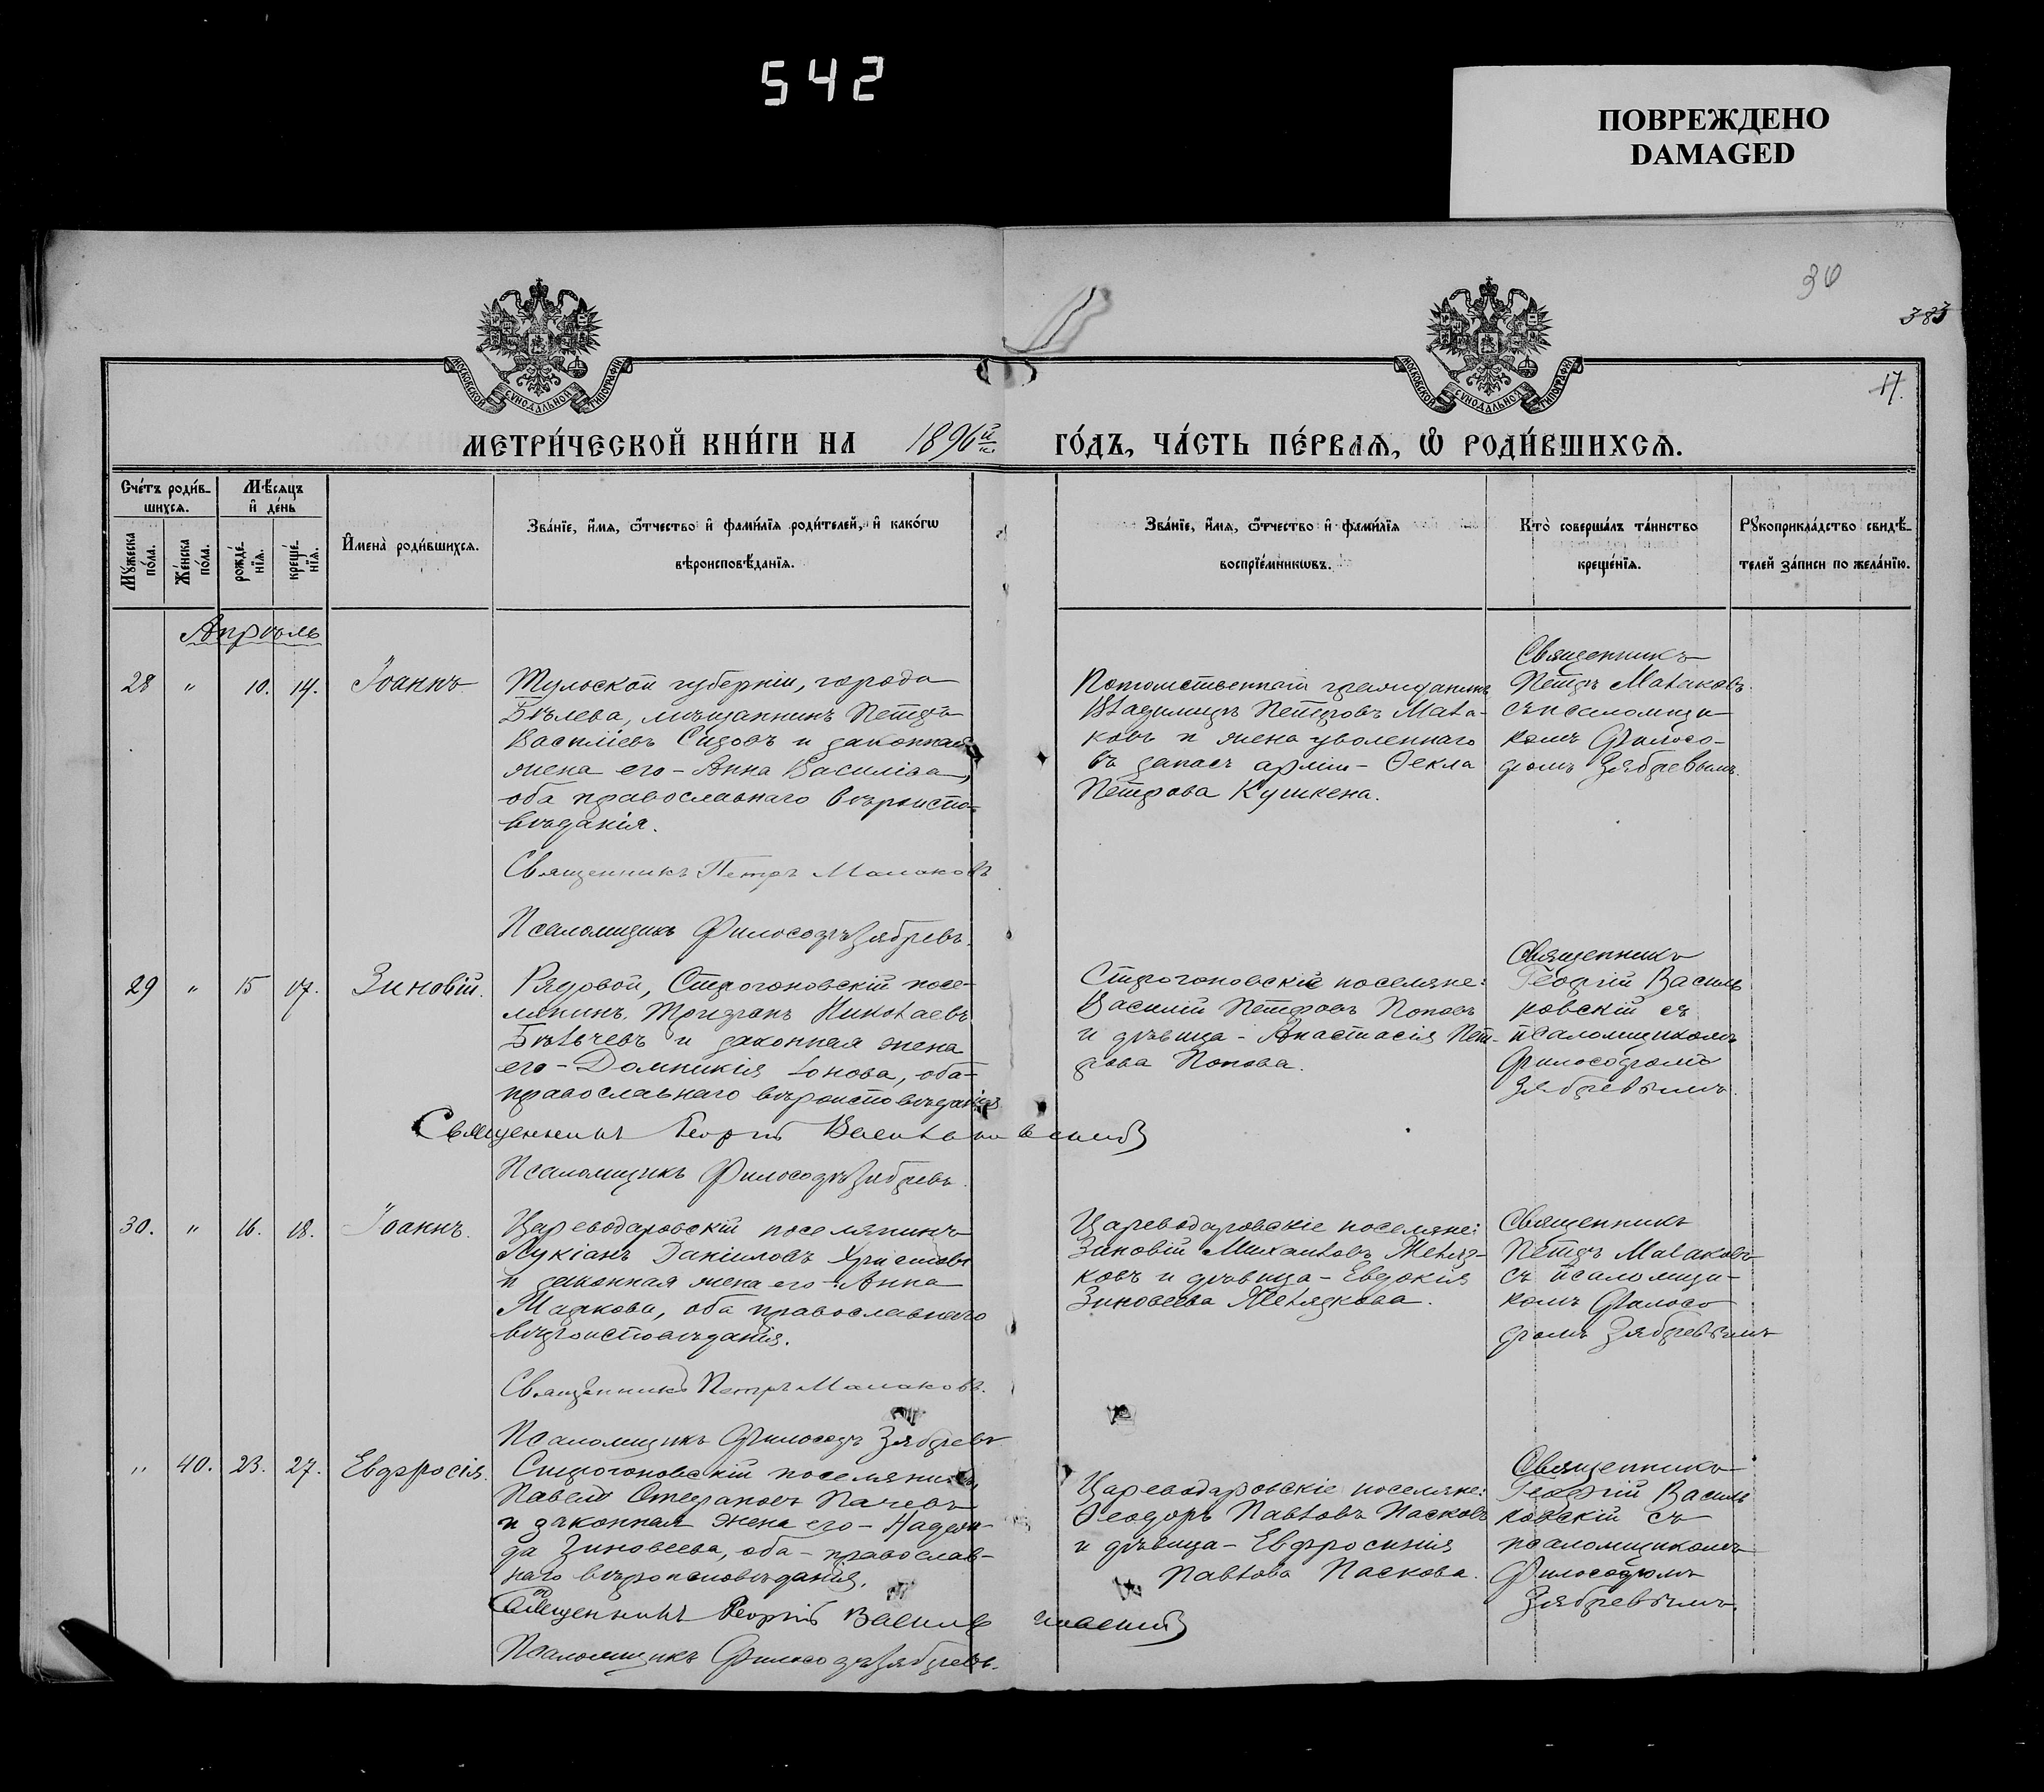 542
ПОВРЕЖДЕНО
DAMAGED
30
383
17.
МОСКОВСКОЙ СУНОДАЛЬНОЙ ТИПОГРАФІИ
МОСКОВСКОЙ СУНОДАЛЬНОЙ ТИПОГРАФІИ
МЕТРИ́ЧЕСКОЙ КНИ́ГИ НА 1896й ГО́ДЪ, ЧА́СТЬ ПЕ́РВАѦ, Ѡ҆ РОДИ́ВШИХСѦ.
Сче́тъ роди́в-
шихсѧ.
Мѣ́сѧцъ
и҆ де́нь
Мꙋ́жеска
по́ла.
Же́нска
по́ла.
рожде́-
нїѧ.
креще́-
нїѧ.
И҆мена̀ роди́вшихсѧ.
Зва́нїе, и҆́мѧ, ѻ҆́тчество и҆ фами́лїѧ роди́телей, и҆ како́гѡ
вѣроисповѣ́данїѧ.
Зва́нїе, и҆́мѧ, ѻ҆́тчество и҆ фами́лїѧ
воспрїе́мникѡвъ.
Кто̀ соверша́лъ та́инство
креще́нїѧ.
Рꙋкоприкла́дство свидѣ́-
телей за́писи по жела́нїю.
Апрѣль
28 " 10. 14. Іоаннъ
Тульской губерніи, города
Бѣлева, мѣщанинъ Петръ
Василіевъ Сизовъ и законная
жена его - Анна Василіева,
оба православнаго вѣроиспо-
вѣданія.
Священникъ Петръ Малаковъ
Псаломщикъ Философъ Зябревъ.
Потомственный гражданинъ
Владимиръ Петровъ Мала-
ковъ и жена уволеннаго
въ запасъ арміи - Ѳекла
Петрова Кушкена.
Священникъ
Петръ Малаковъ
съ псаломщи-
комъ Филосо-
фомъ Зябревымъ.
29 " 15 17. Зиновій.
Рядовой, Строгоновскій посе-
лянинъ, Трифанъ Николаевъ
Бѣлчевъ и законная жена
его - Домникія Іонова, оба
православнаго вѣроисповѣданія
Священникъ Георгій Васильковскій
Псаломщикъ Философъ Зябревъ.
Строгоновскіе поселяне:
Василій Петровъ Поповъ
и дѣвица - Анастасія Пет-
рова Попова.
Священникъ
Георгій Василь
ковскій съ
псаломщикомъ
Философомъ
Зябревымъ.
30. " 16. 18. Іоаннъ.
Цареводаровскій поселянинъ
Лукіанъ Даніиловъ Христовъ
и законная жена его - Анна
Маркова, оба православнаго
вѣроисповѣданія.
Священникъ Петръ Малаковъ.
Псаломщикъ Философъ Зябревъ
Цареводаровскіе поселяне:
Зиновій Михаиловъ Меляд-
ковъ и дѣвица - Евдокія
Зиновеева Мелядкова.
Священникъ
Петръ Малаковъ
съ псаломщи-
комъ Филосо
фомъ Зябревымъ
" 40. 23. 27. Евфросія.
Строгоновскій поселянинъ,
Павелъ Стефановъ Пачевъ
и законная жена его - Надеж-
да Зиновеева, оба - православ-
наго вѣроисповѣданія.
Священникъ Георгій Васильковскій
Псаломщикъ Философъ Зябревъ.
Цареводаровскіе поселяне:
Ѳеодоръ Павловъ Пасковъ
и дѣвица - Евфросинія
Павлова Паскова.
Священникъ
Георгій Василь
ковскій съ
псаломщикомъ
Философомъ
Зябревымъ.